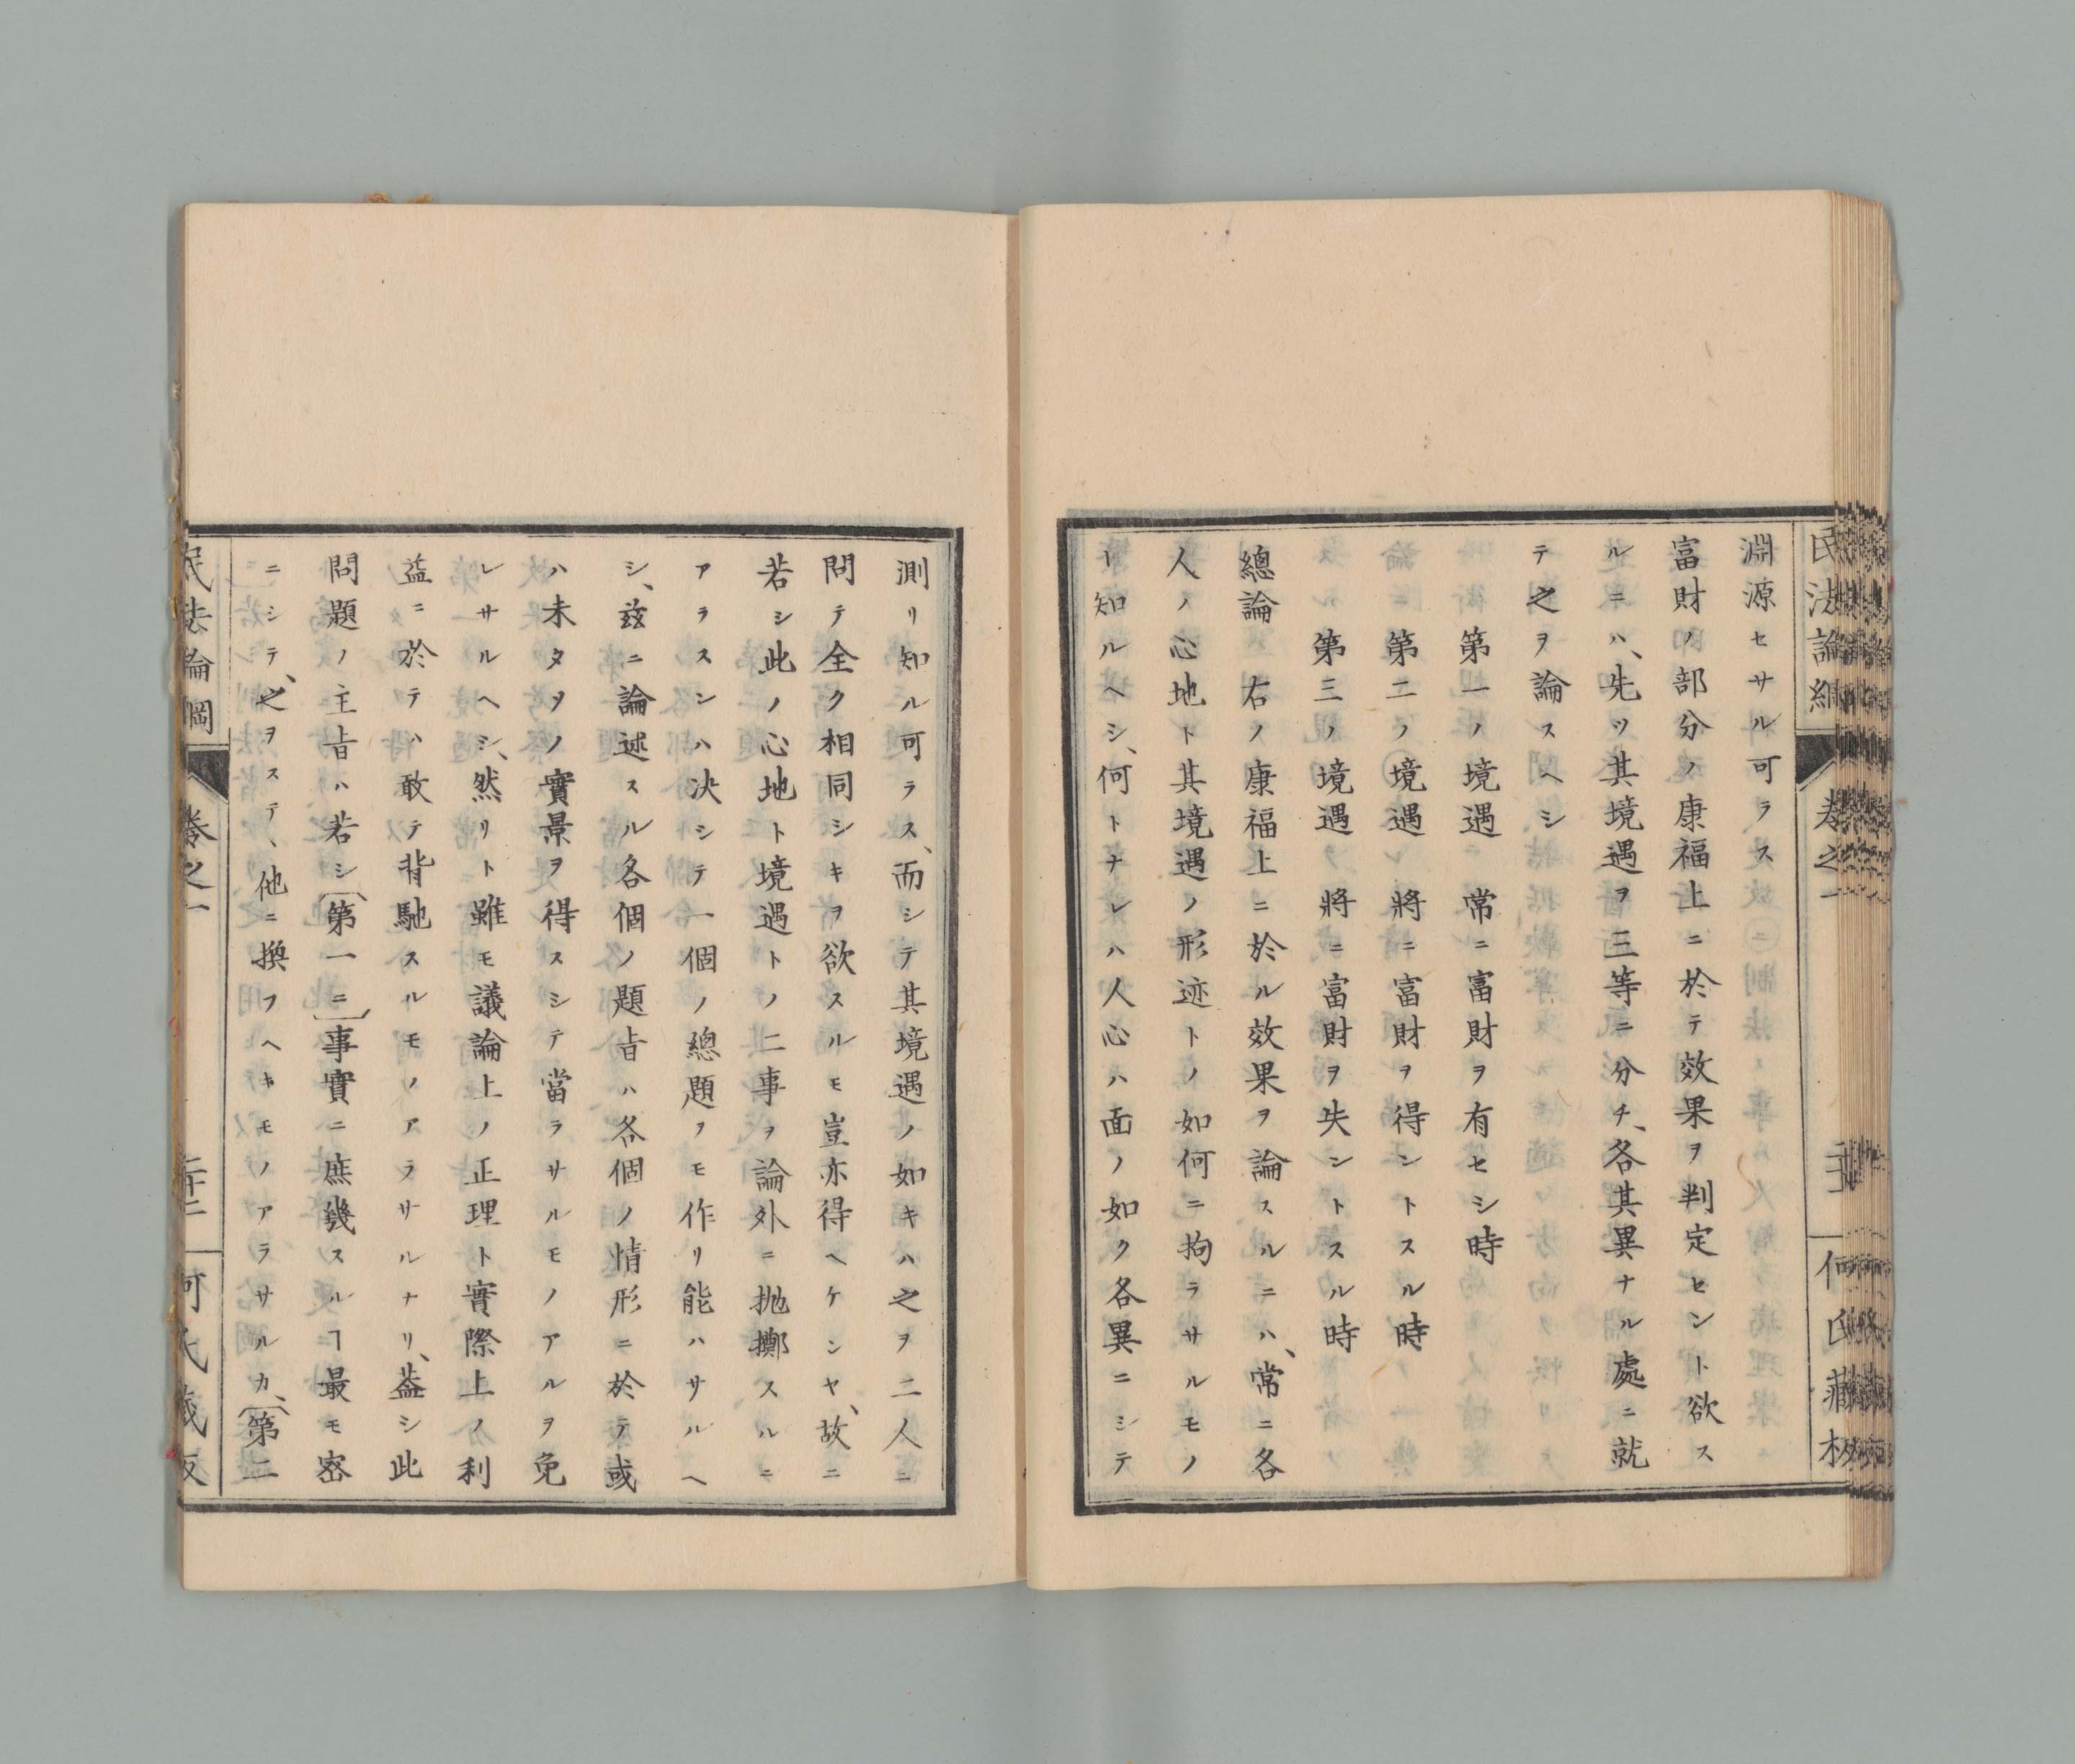 淵源セサル可ラス
富財ノ部分ノ康福上ニ於テ效果ヲ判定セント欲ス
ルニハ、先ツ其境遇ヲ三等ニ分チ、各其異ナル處ニ就
テ之ヲ論スヘシ
第一ノ境遇　常ニ富財ヲ有セシ時
第二ノ境遇　將ニ富財ヲ得ントスル時
第三ノ境遇　將ニ富財ヲ失ントスル時
總論　右ノ康福上ニ於ル效果ヲ論スルニハ、常ニ各
人ノ心地ト其境遇ノ形迹トノ如何ニ拘ラサルモノ
ト知ルヘシ、何トナレハ人心ハ面ノ如ク各異ニシテ
測リ知ル可ラス、而シテ其境遇ノ如キハ之ヲ二人ニ
問テ全ク相同シキヲ欲スルモ豈亦得ヘケンヤ、故ニ
若シ此ノ心地ト境遇トノ二事ヲ論外ニ抛擲スルニ
アラスンハ決シテ一個ノ總題ヲモ作リ能ハサルヘ
シ、茲ニ論述スル各個ノ題㫖ハ各個ノ情形ニ於テ或
ハ未タタノ實景ヲ得スシテ當ラサルモノアルヲ免
レサルヘシ、然リト雖モ議論上ノ正理ト實際上ノ利
益ニ於テハ敢テ背馳スルモノアラサルナリ、葢シ此
問題ノ主㫖ハ若シ（第一ニ）事實ニ庶幾スルヿ最モ密
ニシテ、之ヲステ、他ニ換フヘキモノアラサルカ、（第二
民法論綱
卷之一
何氏藏板